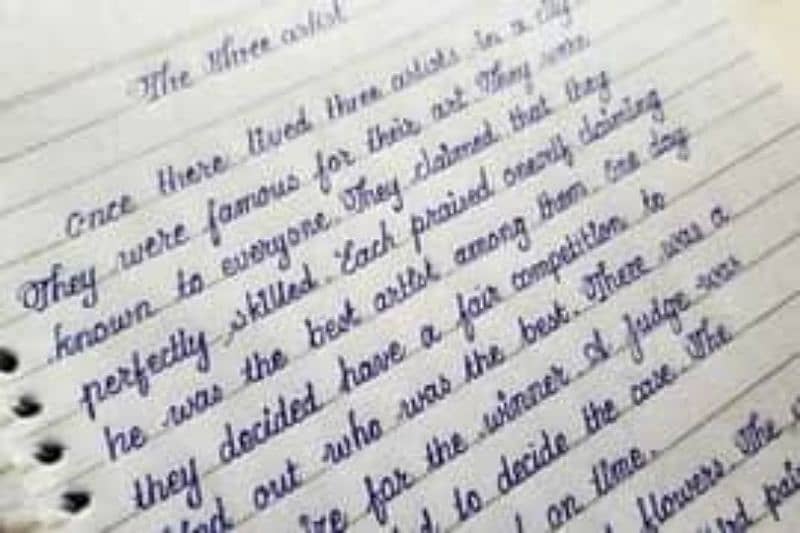 The Three artist
Once there lived three artists in a city
They were famous for their art They were
known to everyone. They claimed that they
perfectly skilled. Each praised oneself claiming
he was the best artist among them. One day
they decided have a fair competition to
find out who was the best. There was a
for the winner A judge was
to decide the case. The
on time.
flowers. The